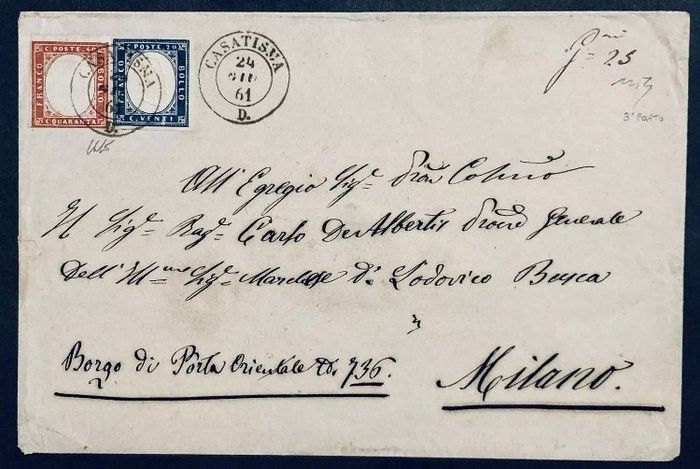 C. POSTE. 40
FRANCO
BOLLO
C. QUARANTA
C. POSTE. 20
FRANCO
BOLLO
C. VENTI
CASATISMA
24
GIU
61
D.
25
3° PORTO
All' Egregio Sig.r
Il Sig.r Rag.r Carlo De Albertis Generale
Dell' Ill.mo Sig.r Marchese D. Lodovico Busca
3
Borgo di Porta Orientale N. 736.
Milano.